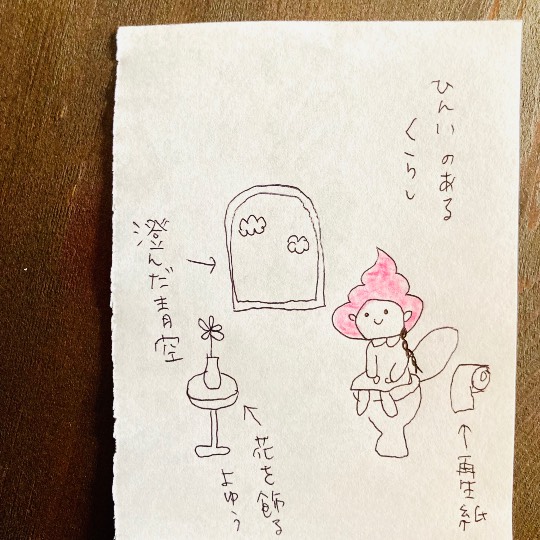 ひんいのある
くらし
再生紙
澄んだ青空
花を飾る
よゆう